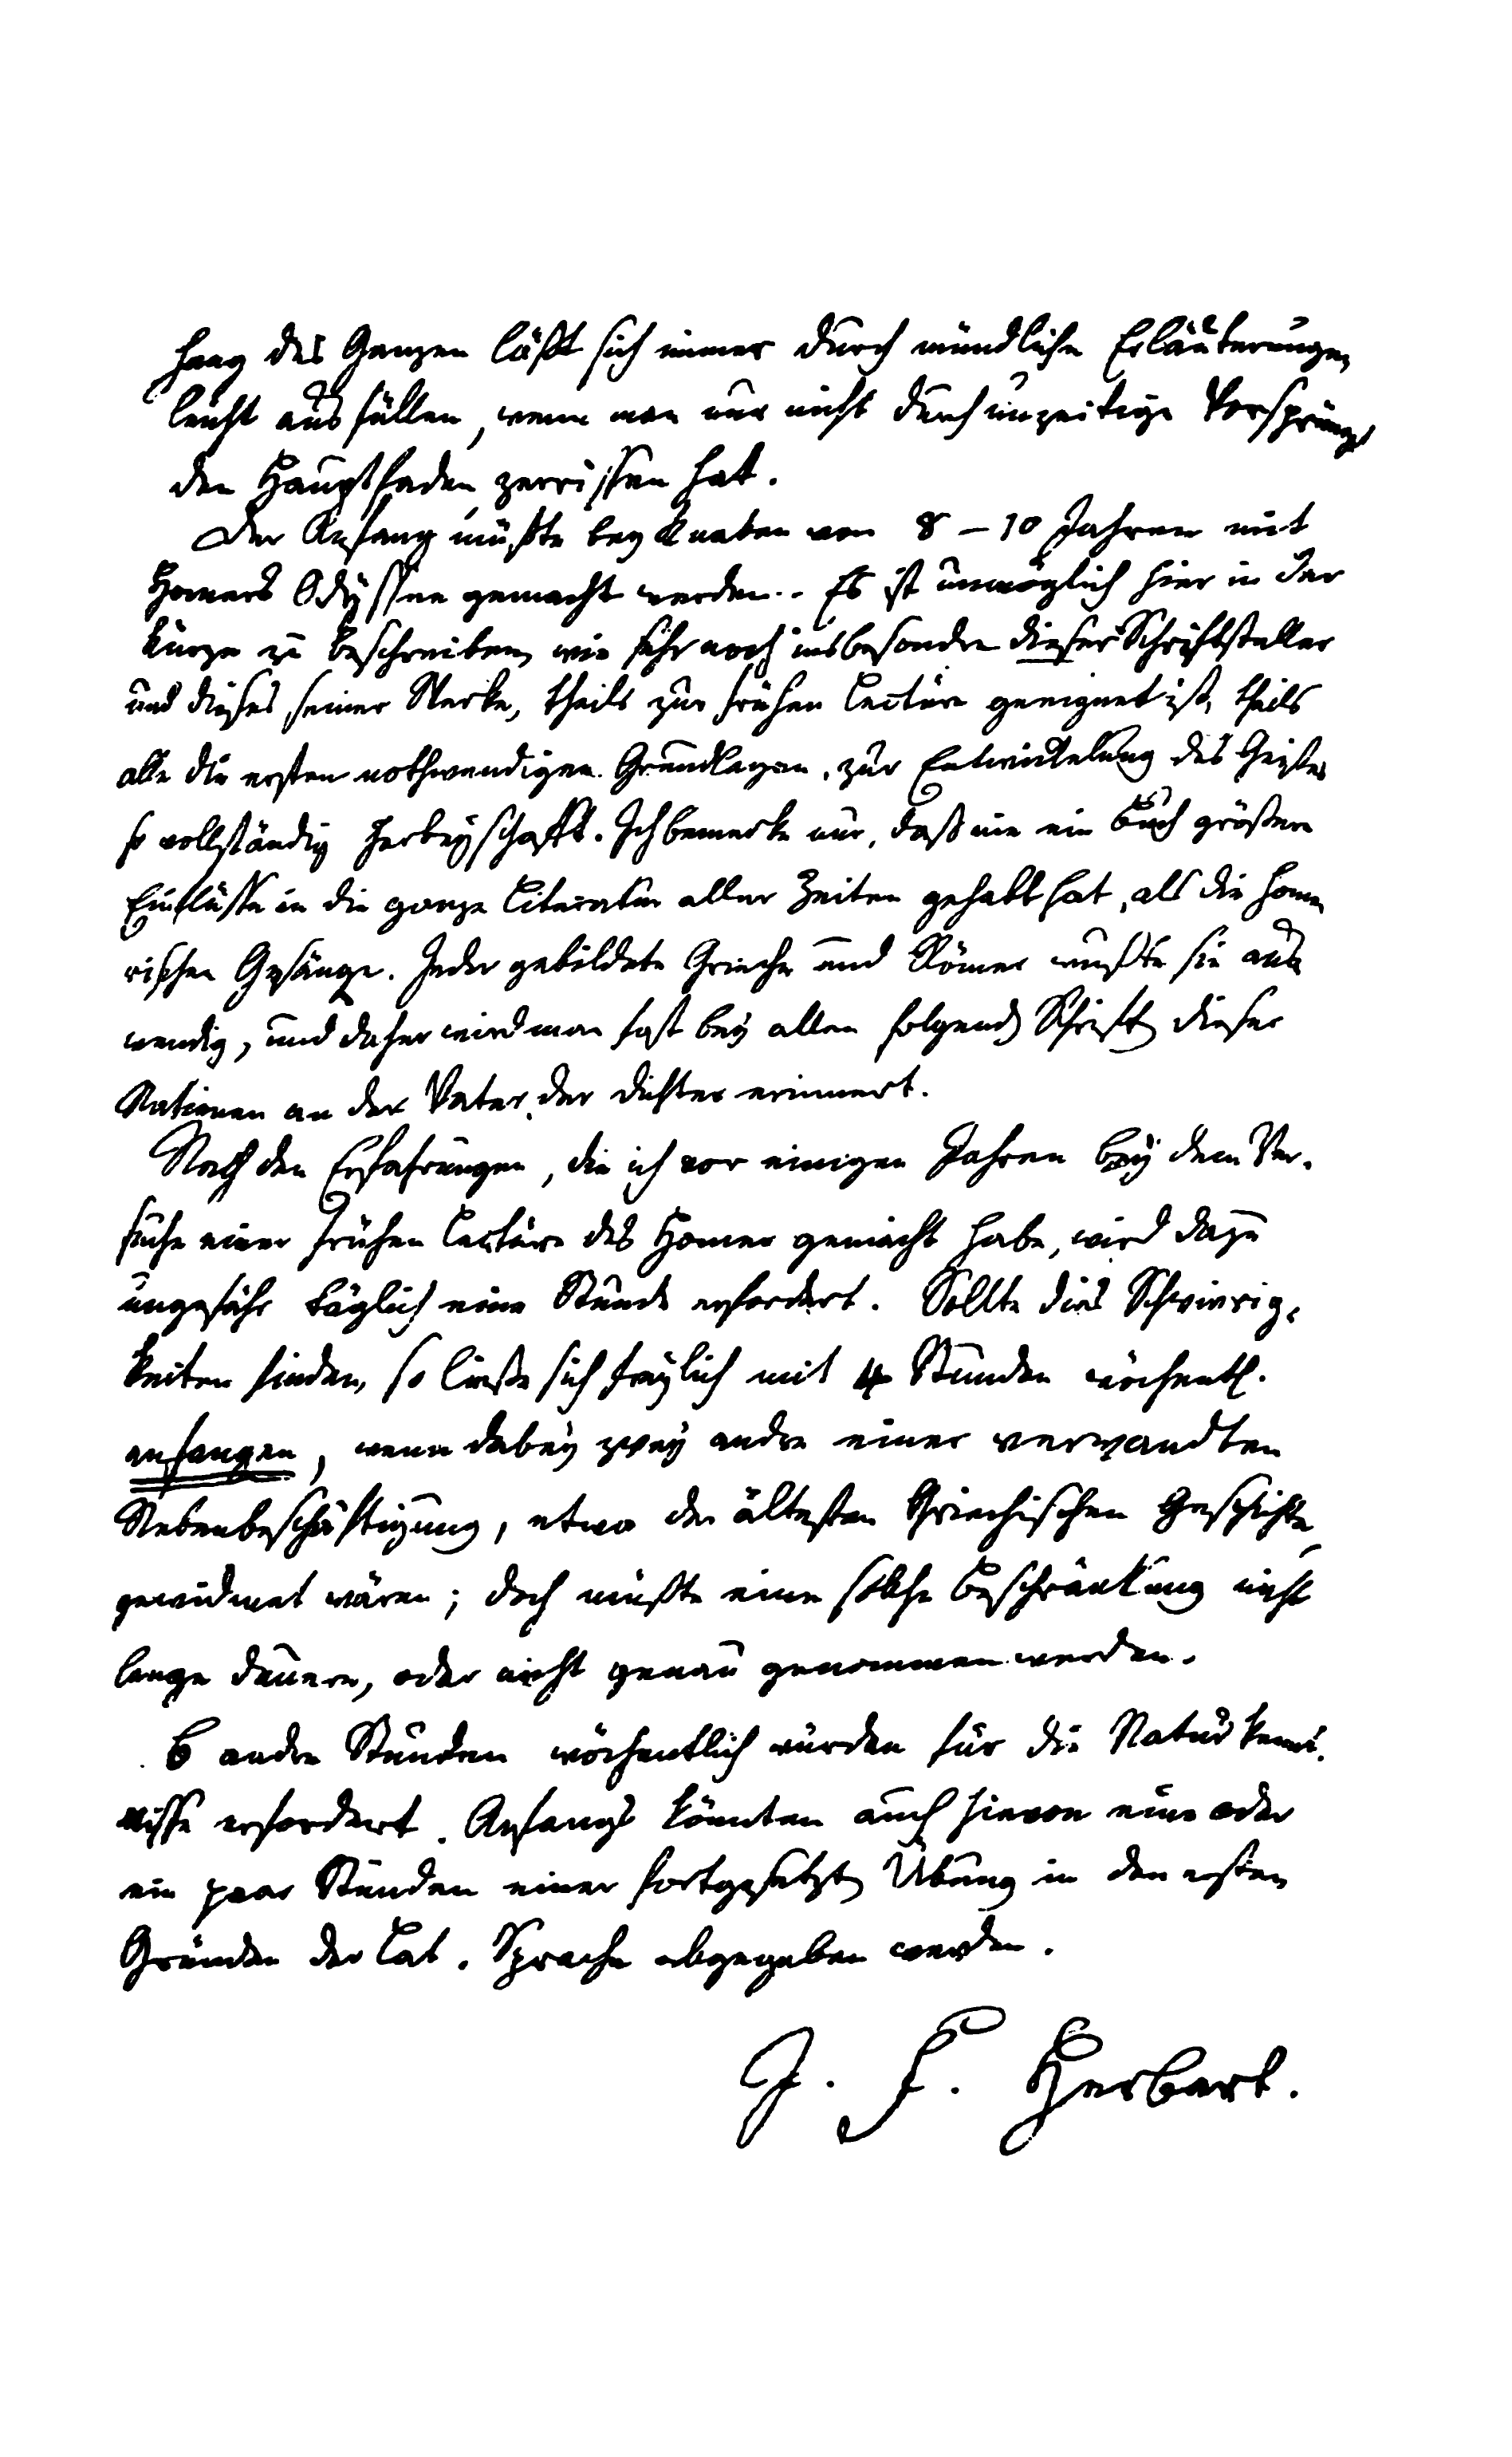 hang des Ganzen läßt sich immer durch mündliche Erläuterungen
leicht ausfüllen, wenn man nur nicht durch unzeitige Vorsprünge
den Hauptfaden zerrissen hat.
Der Anfang müßte bey Knaben von 8 – 10 Jahren mit
Homers Odyssee gemacht werden. Es ist unmöglich hier in der
Kürze zu beschreiben, wie sehr noch insbesondre dieser Schriftsteller
und dieses seiner Werke, theils zur frühen Lectüre geeignet ist, theils
alle die ersten nothwendigen Grundlagen, zur Entwickelung des Geistes
so vollständig herbeyschafft. Ich bemerke nur, daß nie ein Buch größere
Einflüsse in die ganze Literatur aller Zeiten gehabt hat, als die home
rischen Gesänge. Jeder gebildete Grieche und Römer wußte sie aus
wendig, und daher wird man fast bey allen folgenden Schriften dieser
Nationen an den Vater der Dichter erinnert.
Nach den Erfahrungen, die ich vor einigen Jahren bey dem Ver-
suche einer frühen Lectüre des Homer gemacht habe, wird dazu
ungefähr täglich eine Stunde erfordert. Sollte dies Schwierig-
keiten finden, so ließe sich freylich mit 4 Stunden wöchentl.
anfangen, wenn dabey zwey andre einer verwandten
Nebenbeschäftigung, etwa der ältesten Griechischen Geschichte
gewidmet wären; doch müßte eine solche Beschränkung nicht
lange dauern, oder nicht genau genommen werden.
6 andre Stunden wöchentlich würden für die Naturkennt-
nisse erfordert. Anfangs könnten auch hievon eine oder
ein paar Stunden einer fortgesetzten Übung in den ersten
Gründen der Lat. Sprache abgegeben werden.
J. F. Herbart.